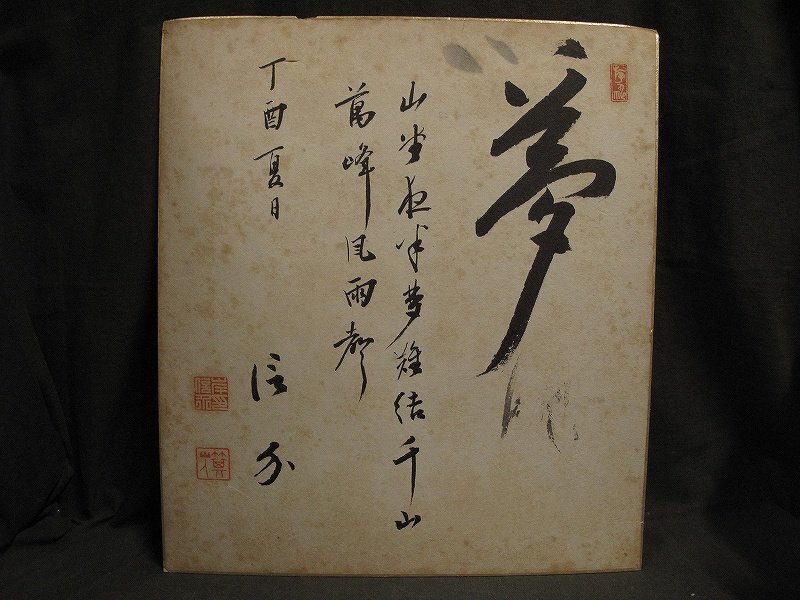 夢
山堂夜半夢難結千山
萬峰風雨聲
丁酉夏日
信介